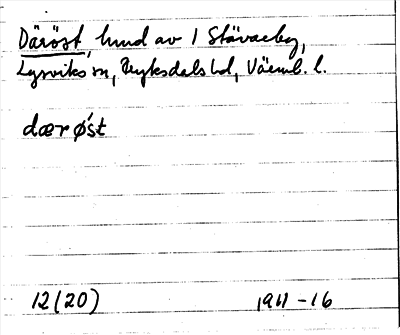 Däröst, hund av 1 Stävaeby,
Lysviks sn, Fryksdals hd, Värml. l.
dærø´st
12(20) 1911-16